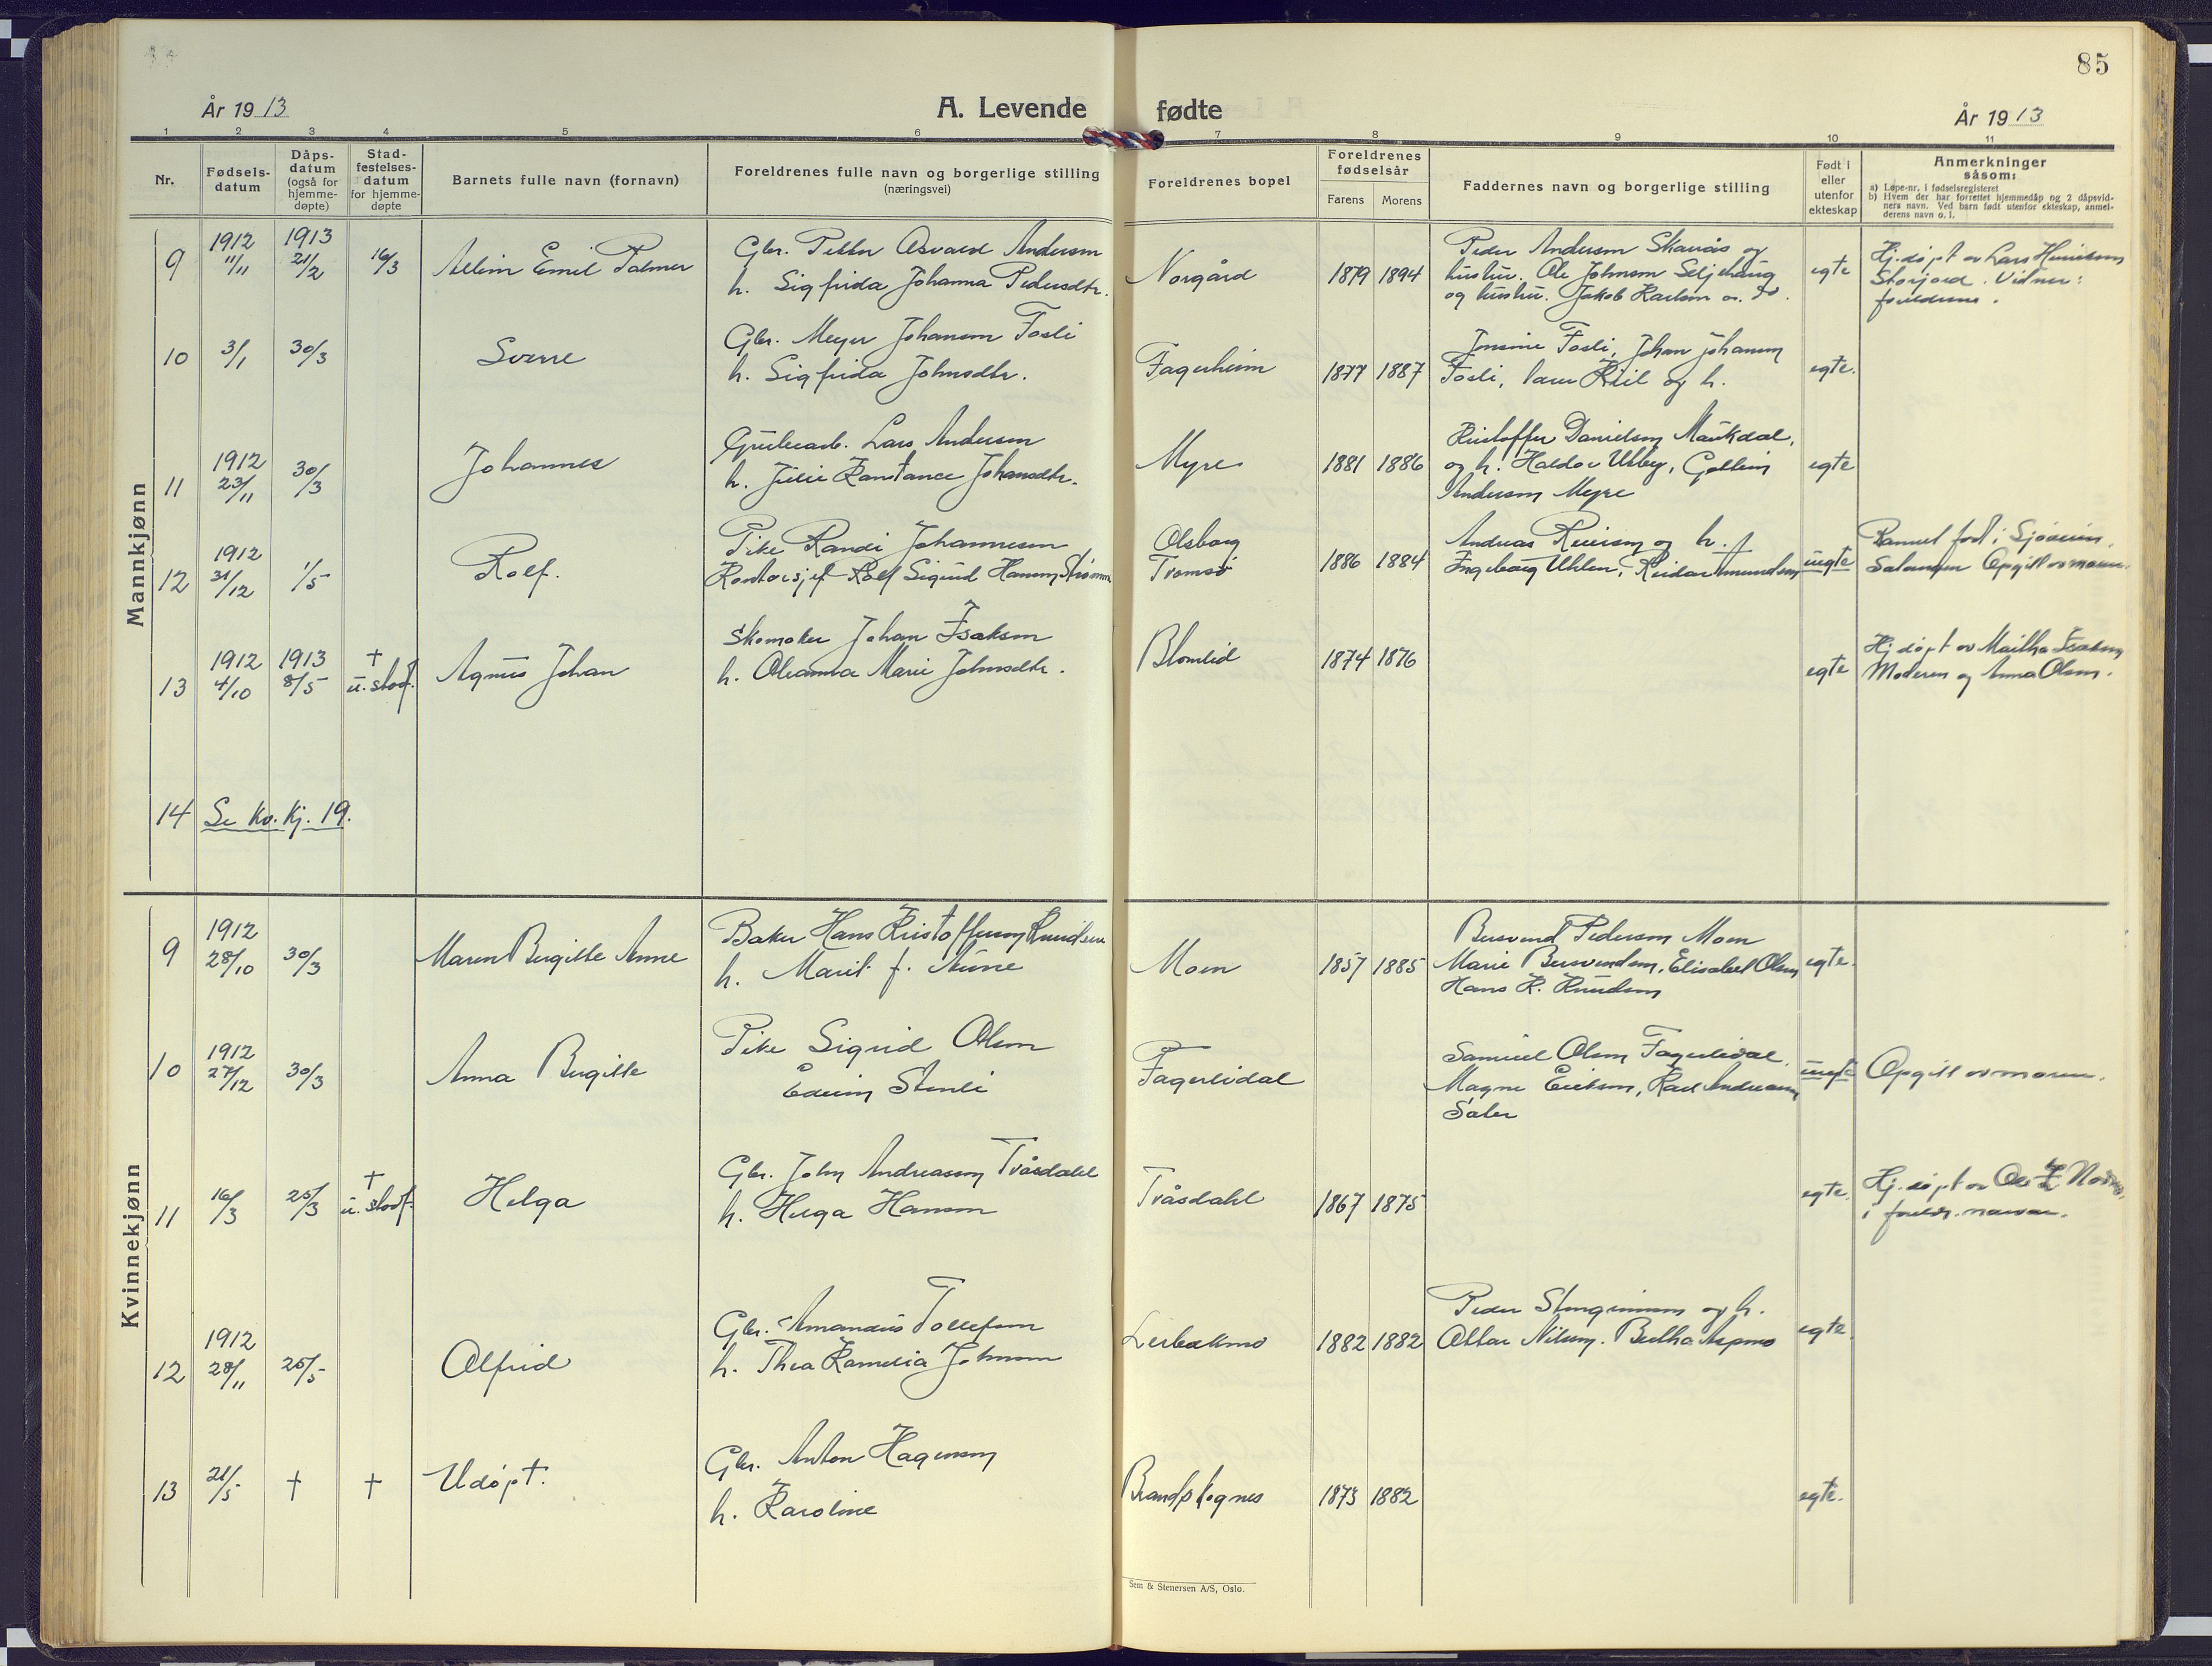 85
År 1913
A. Levende fødte
År 1913
1 2 3 4 5 6 7 8 9 10 11
Nr.
Fødsels-
datum
Dåps-
datum
(også for
hjemme-
døpte)
Stad-
festelses-
datum
for hjemme-
døpte
Barnets fulle navn (fornavn)
Foreldrenes fulle navn og borgerlige stilling
(næringsvei)
Foreldrenes bopel
Foreldrenes
fødselsår
Farens Morens
Faddernes navn og borgerlige stilling
Født i
eller
utenfor
ekteskap
Anmerkninger
såsom:
a) Løpe-nr. i fødselsregisteret
b) Hvem der har forrettet hjemmedåp og 2 dåpsvid-
ners navn. Ved barn født utenfor ekteskap, anmel-
derens navn o. l.
Mannkjønn
9 1912 11/11 1913 21/2 16/3 Emil Palmer
Gbr. Petter Osvald Andersen
h. Sigfrida Johanna Pedersdtr.
Norgård 1879 1894
Peder Andersen Skanås og
hustru. Ole Johnsen Seljehaug
og hustru. Jakob Karlsen o. do.
egte
Hj. døpt av Lars Henriksen
Storjord. Vidner:
foreldrene.
10 3/1 30/3 Sverre
Gbr. Meyer Johansen Fosli
h. Sigfrida Johnsdtr.
Fagerheim 1877 1887
Jensine Fosli, Johan Johansen
Fosli, og h.
egte.
11 1912 23/11 30/3 Johannes
Grubearb. Lars Andersen
h. Julie Konstance Johansdtr.
Myre 1881 1886
Kristoffer Danielsen Maukdal,
og h. Haldor Utby,
Andersen Myre
egte
12 1912 31/12 1/5 Rolf.
Pike Randi Johannesen
Kontorsjef Rolf Sigurd Hansen Strømme
Olsborg
Tromsø 1886 1884
Andreas Reiersen og h.
Ingeborg Uhlen, Reidar Amundsen
uegte
Barnet født i Sjøveien,
Salangen Opgitt av moren.
13 1912 4/10 1913 8/5 † u. stadf. Agnus Johan
Skomaker Johan Isaksen
h. Oleanna Marie Johnsdtr.
Blomlid 1874 1876
egte
Hj. døpt av Martha Isaksen
Moderen og Anna Olsen.
14 Se Kv. Kj. 19.
Kvinnekjønn
9 1912 28/10 30/3 Maren Birgitte Anne
Baker Hans Kristoffersen Knudsen
h. Marit f. Aune
Moen 1857 1885
Bersvend Pedersen Moen
Marie Bersvendsen, Elisabet Olsen
Hans K. Knudsen
egte.
10 1912 27/12 30/3 Anna Birgitte
Pike Sigrid Olsen
Edvin Stenli
Fagerlidal
Samuel Olsen Fagerlidal.
Magne Eriksen, Karl Andreassen
Sæter
uegte
Opgitt av moren.
11 16/3 25/3 † u. stadf. Helga
Gbr. John Andreassen Tvåsdahl
h. Helga Hansen
Tvåsdahl 1867 1875
egte.
Hj. døpt av Ole
i foreldr. nærvær.
12 1912 28/11 25/5 Alfrid
Gbr. Amandus Tollefsen
h. Thea Kamelia Johnsen
Lerbakmo 1882 1882
Peder Stengrimsen og h.
Ottar Nilsen. Bertha Aspmo
egte
13 21/5 † † Udøpt.
Gbr. Anton Hagensen
h. Karoline
Brandskognes 1873 1882
egte.
Sem & Stenersen A/S, Oslo.